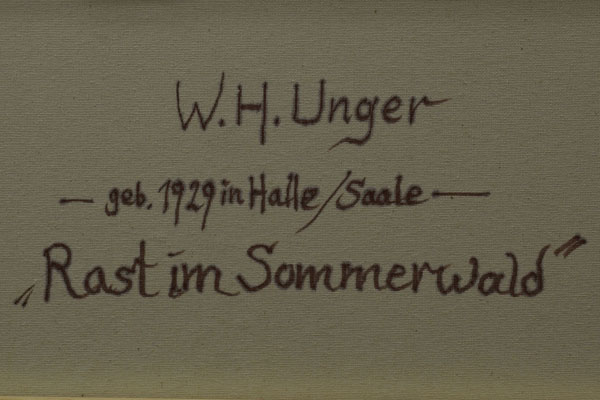 W. H. Unger
— geb. 1929 in Halle/Saale —
„Rast im Sommerwald”